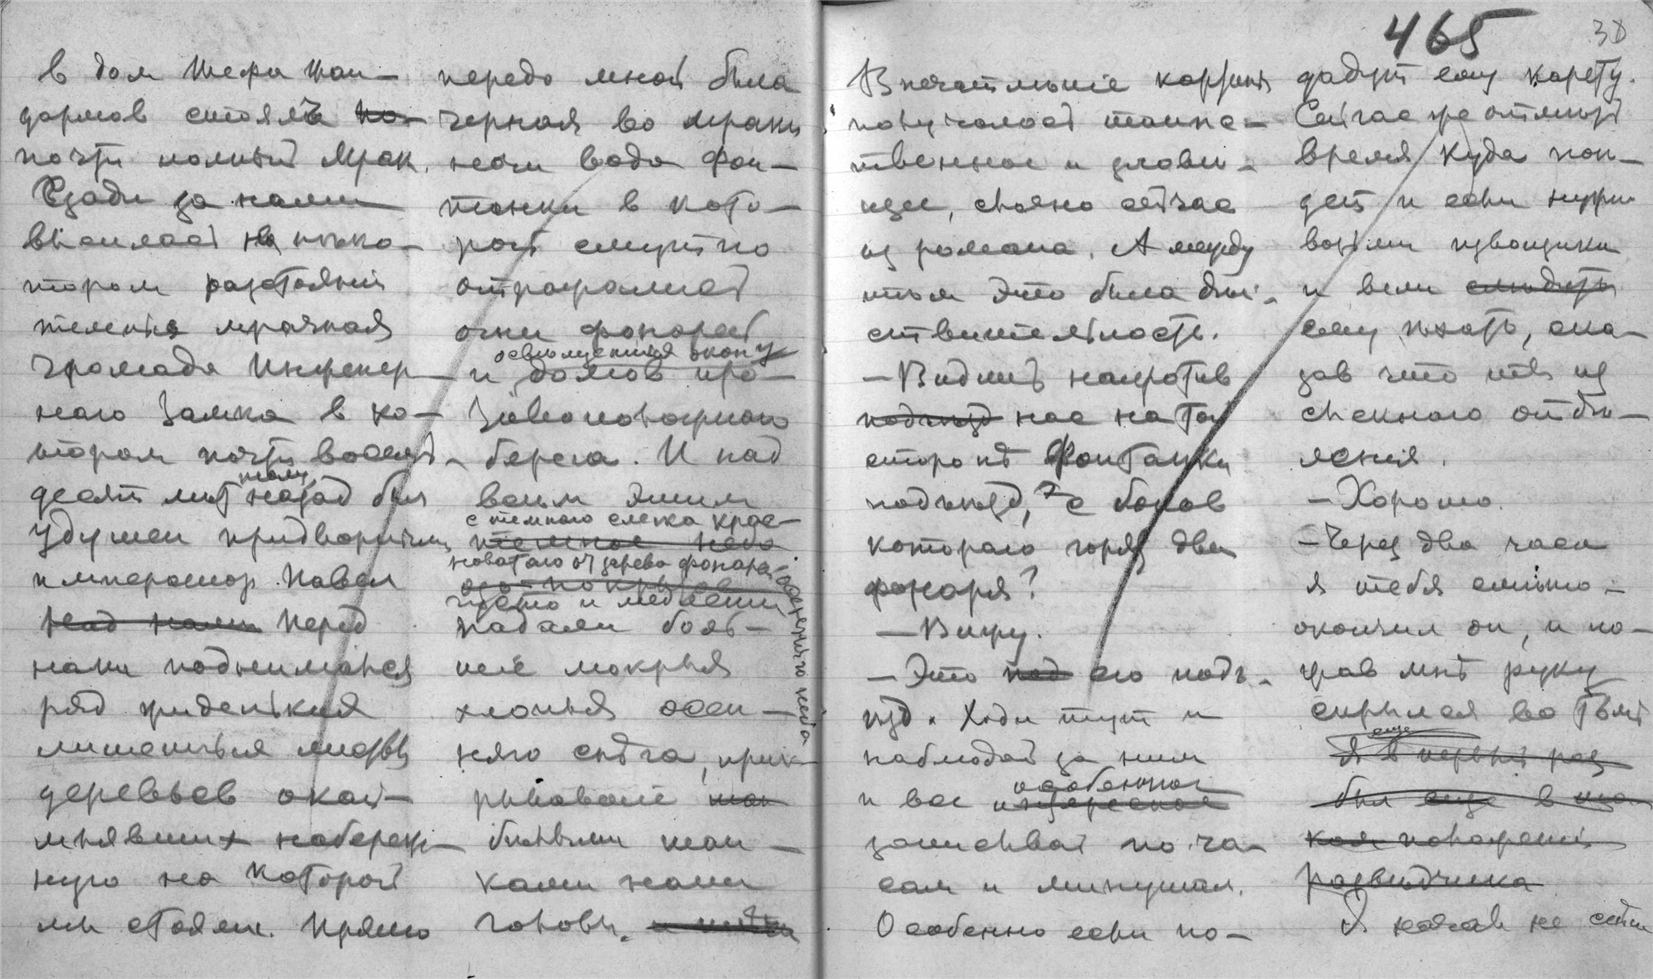 465
38
в дом шефа жан-
дармов стоялъ по-
почти полный мрак.
Сзади за нами
высилась на неко-
тором разстоянiи
мрачная
громада Инженер-
наго Замка в ко-
тором почти восемь-
десят лет тому назад был
удушен придворными
император Павел
Над нами Перед
нами поднимался
ряд
лишенных листвы
деревьев окай-
млявших набереж-
ную на которой
мы стояли. Прямо
передо мной была
черная во мраке
ночи вода Фон-
танки в кото-
рой смутно
отражались
огни фонарей
и освещенныя окна
домов про-
тивоположнаго
берега. И над
всем этим
с темного слегка крас-
новатаго от зарева фонарей
осенняго неба
темное небо
густо и медленно
падали боль-
шiе мокрыя
хлопья осен-
няго снега, прик-
рывавшiе
белыми шап-
ками наши
головы.
Впечатленiе картины
получалось таинс-
твенное и злове-
щее, словно сейчас
из романа. А между
тем это была дей-
ствительность.
— Видишь напротив
подъезд нас на той
стороне Фонтанки
подъезд, с боков
котораго горят два
фонаря?
— Вижу.
— Это под его подъ-
езд. Ходи тут и
наблюдай за ним
и все интересное особенное
записывай по ча-
сам и минутам.
Особенно если по-
дадут ему карету.
Сейчас же отметь
время куда пое-
дет и если нужно
возьми извощика
и вели следить
ему ехать, ска-
зав что ты из
сыскного отде-
ленiя.
— Хорошо.
— Через два часа
я тебя сменю —
окончил он, и по-
жав мне руку
скрылся во тьме
Я еще в первый раз
был еще в та-
ком положенiи
разведчика
Я начал не